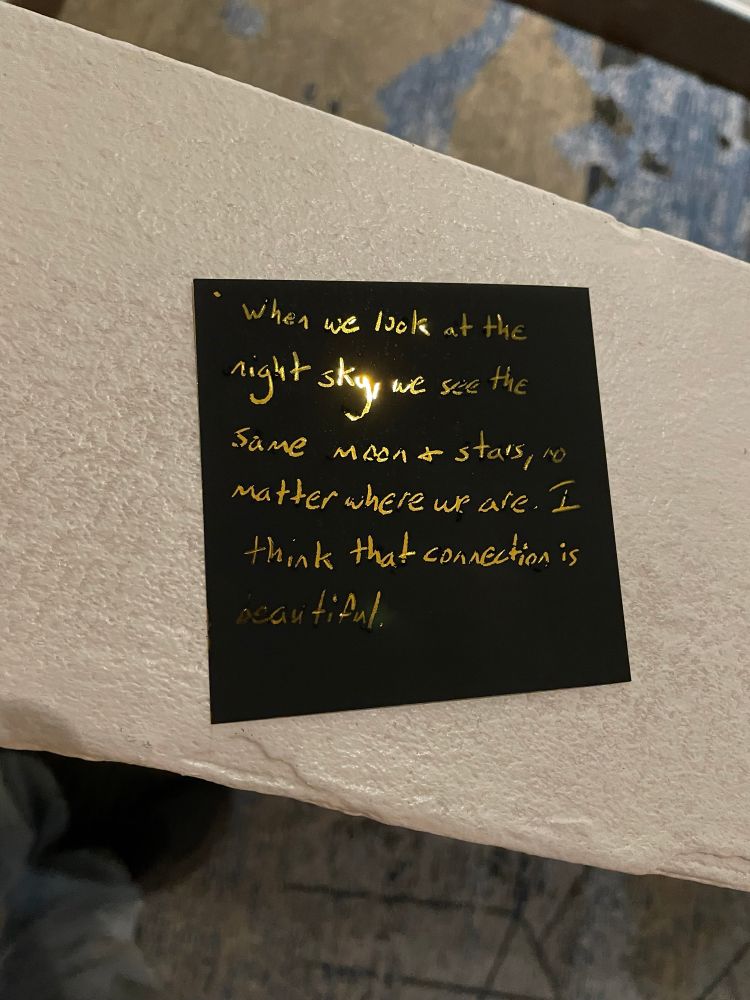 When we look at the
night sky, we see the
same moon & stars, no
matter where we are. I
think that connection is
beautiful.